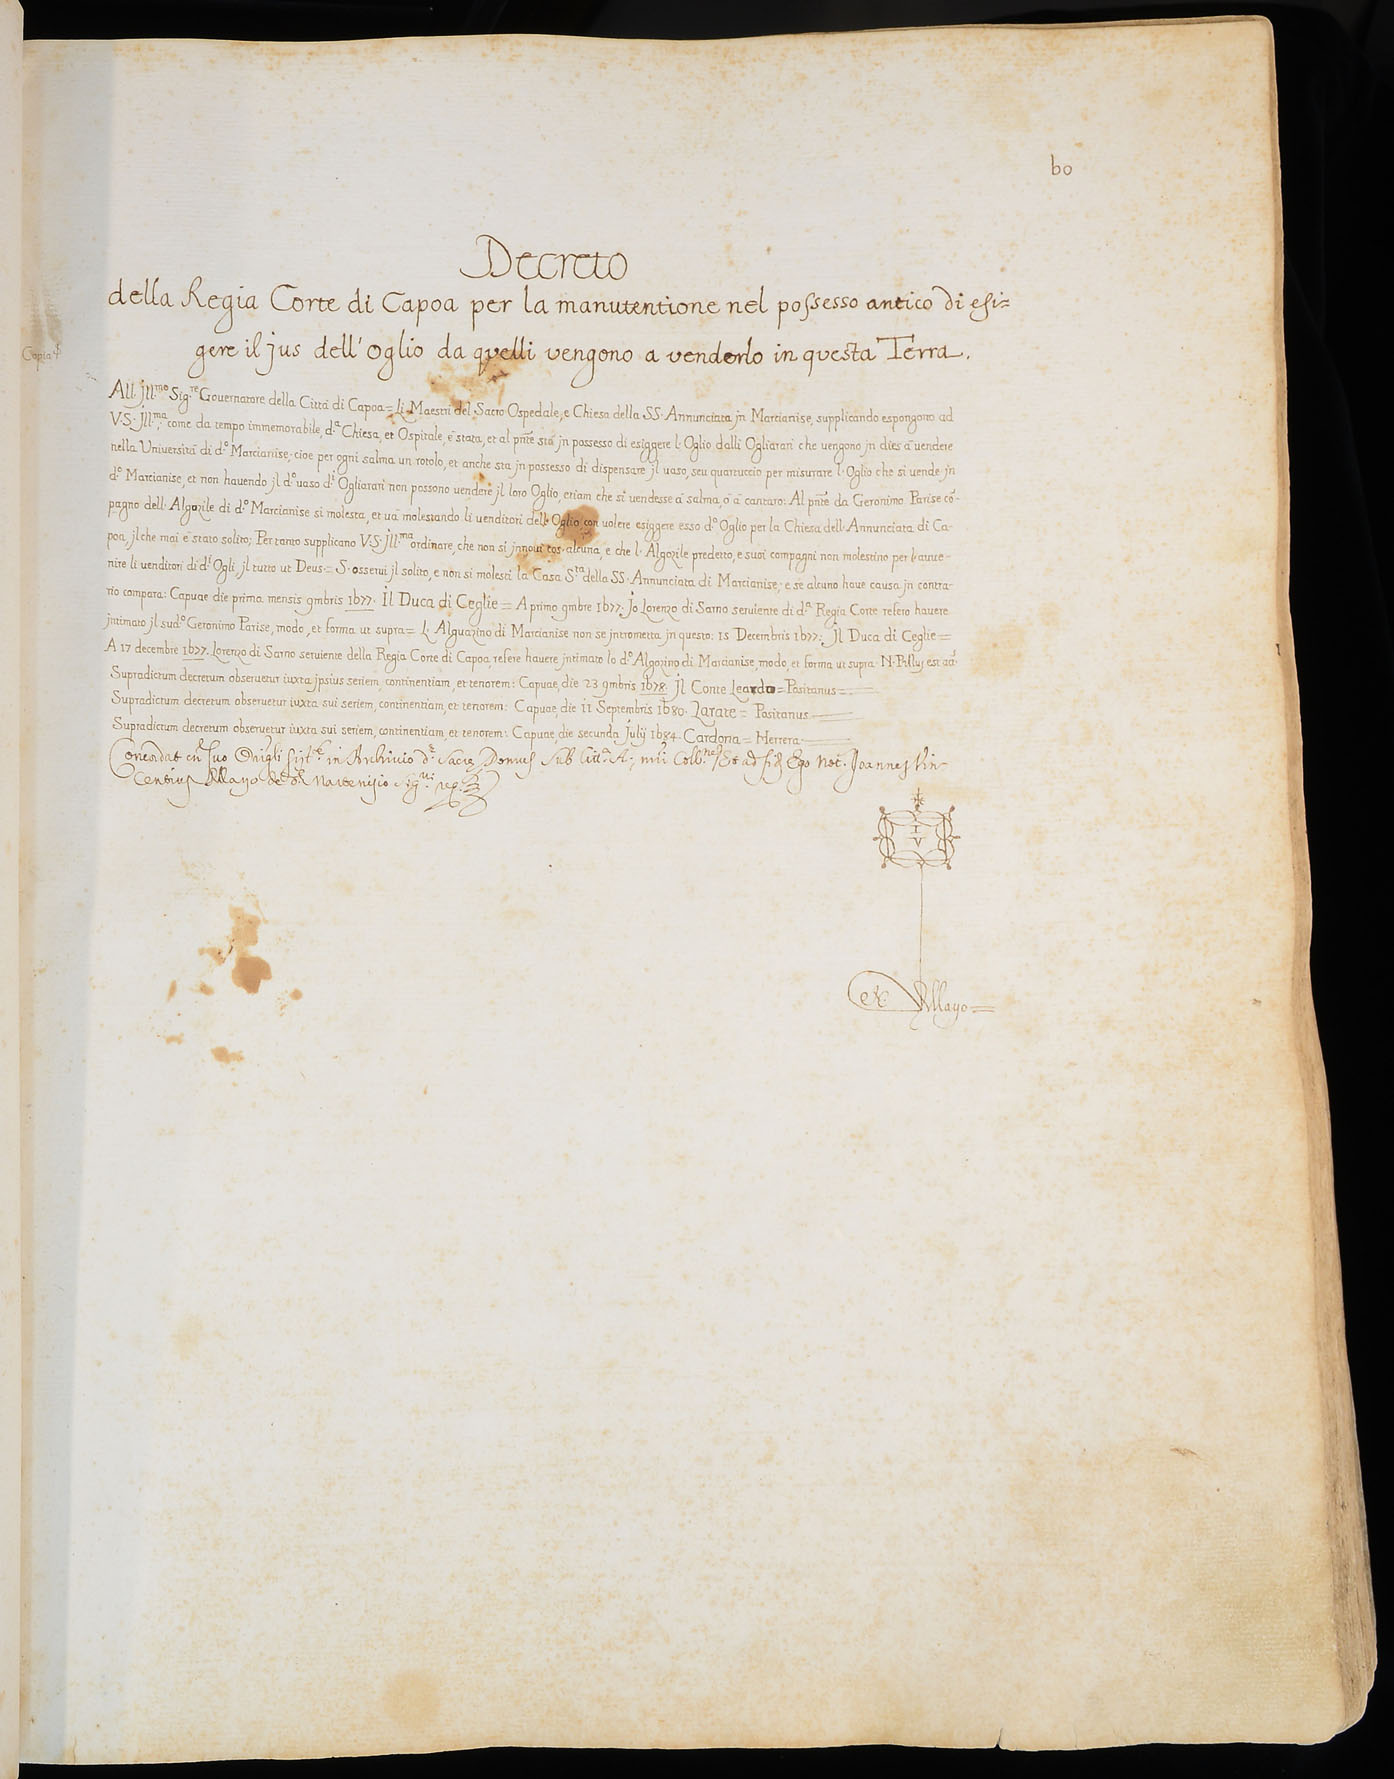 60
Decreto
della Regia Corte di Capoa per la manutentione nel possesso antico di esi=
gere il jus dell'Oglio da quelli vengono a venderlo in questa Terra.
Copia
All. Jll.mo Sig.re Gouernatore della Città di Capoa= Li Maestri del Sacro Ospedale, e Chiesa della SS. Annunciata jn Marcianise, supplicando espongono ad
V.S. Jll.ma, come da tempo immemorabile, d.a Chiesa, et Ospitale, è stata, et al pñte stà jn possesso di esiggere l'Oglio dalli Ogliarari che vengono jn dies à vendere
nella Università di d.o Marcianise, cioe per ogni salma un rotolo, et anche sta jn possesso di dispensare jl uaso, seu quartuccio per misurare l'Oglio che si vende jn
d.o Marcianise, et non hauendo jl d.o uaso d.i Ogliarari non possono vendere jl loro Oglio, etiam che si vendesse à salma, ò à cantaro: Al pñte da Geronimo Parise cō-
pagno dell'Algozile di d.o Marcianise si molesta, et uà molestando li venditori dell'Oglio, con volere esiggere esso d.o Oglio per la Chiesa dell'Annunciata di Ca-
poa, jl che mai è stato solito; Pertanto supplicano V.S. Jll.ma ordinare, che non si jnnoui cos'alcuna, e che l'Algozile predetto, e suoi compagni non molestino per l'auue-
nire li venditori di d.i Ogli, jl tutto ut Deus= S'osserui jl solito, e non si molesti la Casa S.ta della SS. Annunciata di Marcianise, e se alcuno haue causa jn contra-
rio compara: Capuae die prima mensis 9mbris 1677. Il Duca di Ceglie= A primo 9mbre 1677. Jo Lorenzo di Sarno seruiente di d.a Regia Corte refero hauere
jntimato jl sud.o Geronimo Parise, modo, et forma ut supra= L'Alguazino di Marcianise non se jntrometta jn questo: 15 Decembris 1677: Jl Duca di Ceglie=
A 17 decembre 1677. Lorenzo di Sarno seruiente della Regia Corte di Capoa, refere hauere jntimato lo d.o Algozino di Marcianise, modo, et forma ut supra
Supradictum decretum obseruetur iuxta jpsius seriem, continentiam, et tenorem: Capuae, die 23 9mbris 1678. Jl Conte = Positanus=
Supradictum decretum obseruetur iuxta sui seriem, continentiam, et tenorem: Capuae, die 11 Septembris 1680. Zarate= Positanus
Supradictum decretum obseruetur iuxta sui seriem, continentiam, et tenorem: Capuae, die secunda Julij 1684. Cardona= Herrera
Concordat cū suo in Archiuio Sacrę Domus sub Et ad fidē Ego Not. Joannes Vin-
centius Allayo de
I
V
Allayo=